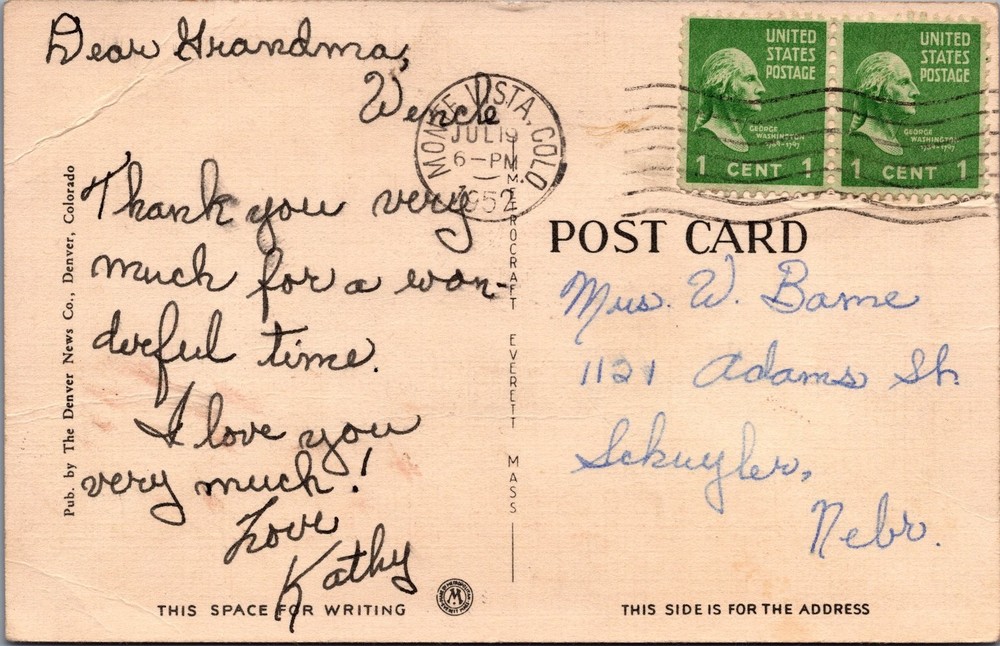 Dear Grandma,
Wencle
Thank you very
much for a won-
derful time.
I love you
very much!
Love
Kathy
THIS SPACE FOR WRITING
Pub. by The Denver News Co., Denver, Colorado
METROCRAFT EVERETT MASS
MONTE VISTA, COLO
JUL 19
6-PM
1952
UNITED
STATES
POSTAGE
GEORGE
WASHINGTON
1 CENT 1
UNITED
STATES
POSTAGE
GEORGE
WASHINGTON
1 CENT 1
POST CARD
Mrs. W. Bame
1121 Adams St.
Schuyler,
Nebr.
THIS SIDE IS FOR THE ADDRESS